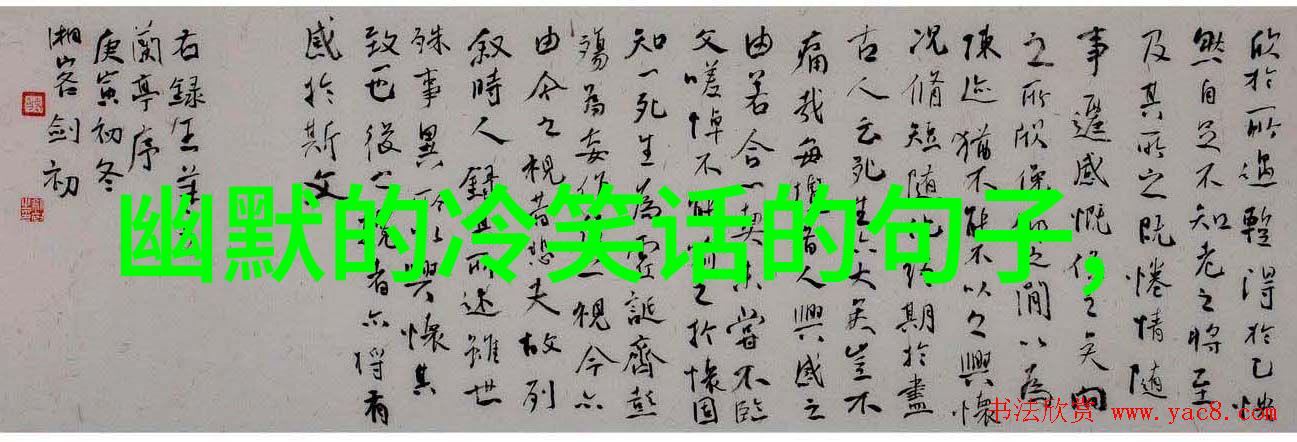 欣於所遇暫得於己快
然自足不知老之將至
及其所之既惓情隨
事遷感慨係之矣向
之所欣俛仰之間以為
陳迹猶不能不以之興懷
況脩短隨化終期於盡
古人云死生亦大矣豈不
痛哉每攬昔人興感之
由若合一契未嘗不臨
文嗟悼不能喻之於懷固
知一死生為虛誕齊彭
殤為妄作後之視今亦
由今之視昔悲夫故列
敘時人錄其所述雖世
殊事異所以興懷其
致一也後之覽者亦將有
感於斯文
右錄王羲
蘭亭序
庚寅初冬
劍初
幽默的冷笑话的句子,
书法欣赏 www.yac8.com